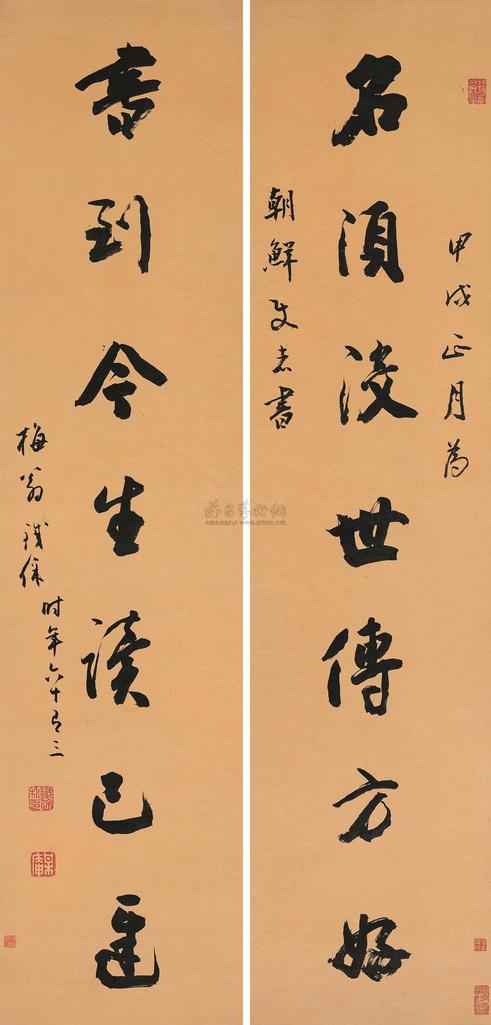 甲戌正月為
名須後世傳方好
朝鮮書
書到今生讀已遲
梅翁鐵保時年六十有三
雅昌藝術網
www.artron.net